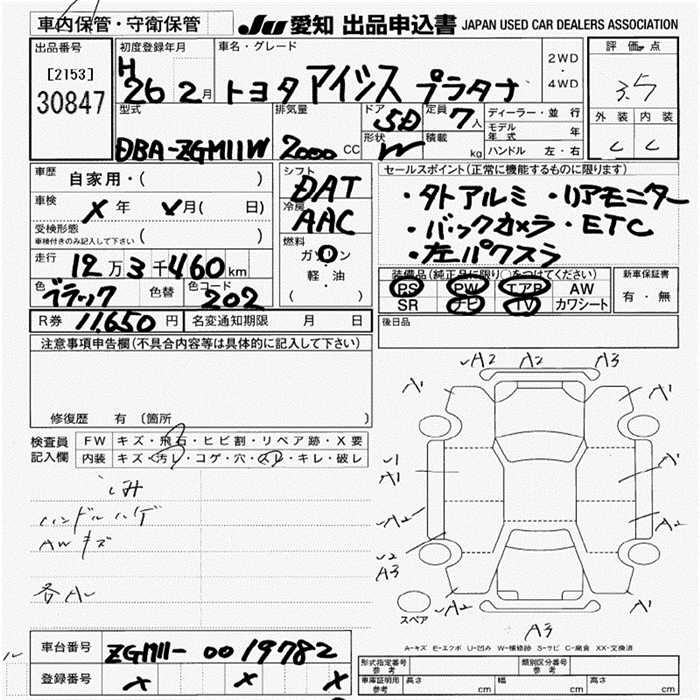 車内保管・守衛保管 JU 愛知 出品申込書 JAPAN USED CAR DEALERS ASSOCIATION
出品番号 初度登録年月 車名・グレード 2WD・4WD 評価点
[2153] 30847 H26 2月 トヨタ アイシス プラタナ 3.5
型式 排気量 ドア 5D 定員 7人 ディーラー・並行 外装 内装
モデル年式 年
DBA-ZGM11W 2000cc 形状 W 積載 kg ハンドル 左・右 C C
車歴 自家用・( ) シフト DAT セールスポイント(正常に機能するものに限ります)
車検 X年 月( 日) 冷房 AAC ・外アルミ ・リアモニター
受検形態 車検付きのみ記入して下さい ( ) ・バックカメラ ・ETC
走行 12万3千460km 燃料 ガソリン 軽・油 ( ) ・左パワスラ
色 ブラック 色替 色コード 202 装備品(純正品に限り○をつけてください) 新車保証書
PS PW エアB AW 有・無
SR ナビ TV カワシート
R券 11,650円 名変通知期限 月 日 後日品
注意事項申告欄(不具合内容等は具体的に記入して下さい)
修復歴 有 (箇所
検査員記入欄 FW キズ・飛石・ヒビ割・リペア跡・X要 3
内装 キズ・汚レ・コゲ・穴・スレ・キレ・破レ
シミ
ハンドルハゲ
AWキズ
A2 A2 A3
A1 A1
A1
A2 A2
A3
スペア A2
A3
A=キズ E=エクボ U=凹み W=補修跡 S=サビ C=腐食 XX=交換済
車台番号 ZGM11-0019782
登録番号 X X X
形式指定番号 参考 類別区分番号 参考
車庫証明用 参考 長さ cm 幅 cm 高さ cm